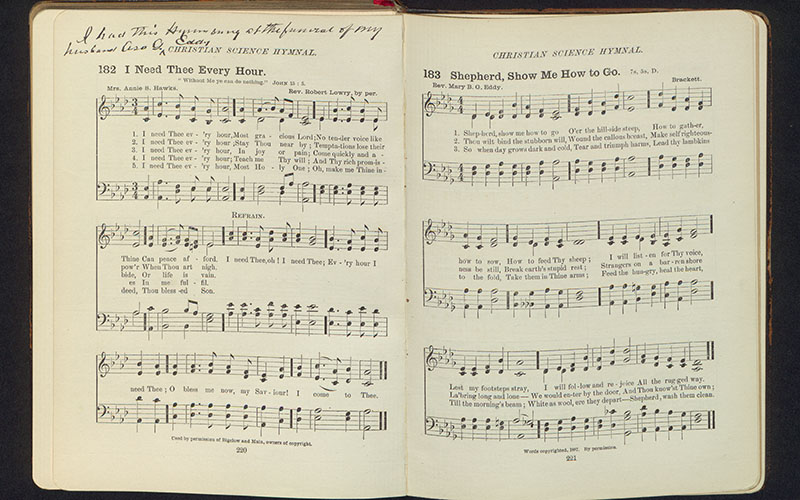 I had this Hymn sung at the funeral of my
husband Asa G. Eddy
CHRISTIAN SCIENCE HYMNAL.
182 I Need Thee Every Hour.
"Without Me ye can do nothing." JOHN 15 : 5.
Mrs. Annie S. Hawks.
Rev. Robert Lowry, by per.
1. I need Thee ev - 'ry hour, Most gra - cious Lord; No ten-der voice like
2. I need Thee ev - 'ry hour; Stay Thou near by; Tempta-tions lose their
3. I need Thee ev - 'ry hour, In joy or pain; Come quickly and a -
4. I need Thee ev - 'ry hour; Teach me Thy will; And Thy rich prom-is -
5. I need Thee ev - 'ry hour, Most Ho - ly One; Oh, make me Thine in -
REFRAIN.
Thine Can peace af - ford. I need Thee, oh! I need Thee; Ev - 'ry hour I
pow'r When Thou art nigh.
bide, Or life is vain.
es In me ful - fil.
deed, Thou bless - ed Son.
need Thee; O bless me now, my Sav - iour! I come to Thee.
Used by permission of Biglow and Main, owners of copyright.
220
CHRISTIAN SCIENCE HYMNAL.
183 Shepherd, Show Me How to Go. 7s, 5s, D.
Rev. Mary B. G. Eddy.
Brackett.
1. Shep-herd, show me how to go O'er the hill-side steep, How to gath-er,
2. Thou wilt bind the stubborn will, Wound the callous breast, Make self righteous-
3. So when day grows dark and cold, Tear and triumph harms, Lead thy lambkins
how to sow, How to feed Thy sheep; I will list - en for Thy voice,
ness be still, Break earth's stupid rest; Strangers on a bar - ren shore
to the fold, Take them in Thine arms; Feed the hun-gry, heal the heart,
Lest my footsteps stray, I will fol - low and re - joice All the rug-ged way.
La'bring long and lone — We would en-ter by the door, And Thou know'st Thine own;
Till the morning's beam; White as wool, ere they depart—Shepherd, wash them clean.
Words copyrighted, 1887. By permission.
221